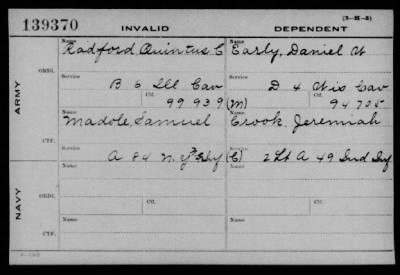 (3-H-5)
139370 INVALID DEPENDENT
Name Name
Radford, Quintus C Early, Daniel W
ORIG.
Service Service
B 6 Ill Cav D 4 Wis Cav
Ctf. Ctf.
99939 (M) 94705
ARMY
Name Name
Madole, Samuel Crook, Jeremiah
CTF.
Service Service
A 84 N.Y. (C) 2 Lt A 49 Ind Inf
Name Name
ORIG.
Service Service
NAVY
Name Name
CTF.
Service Service